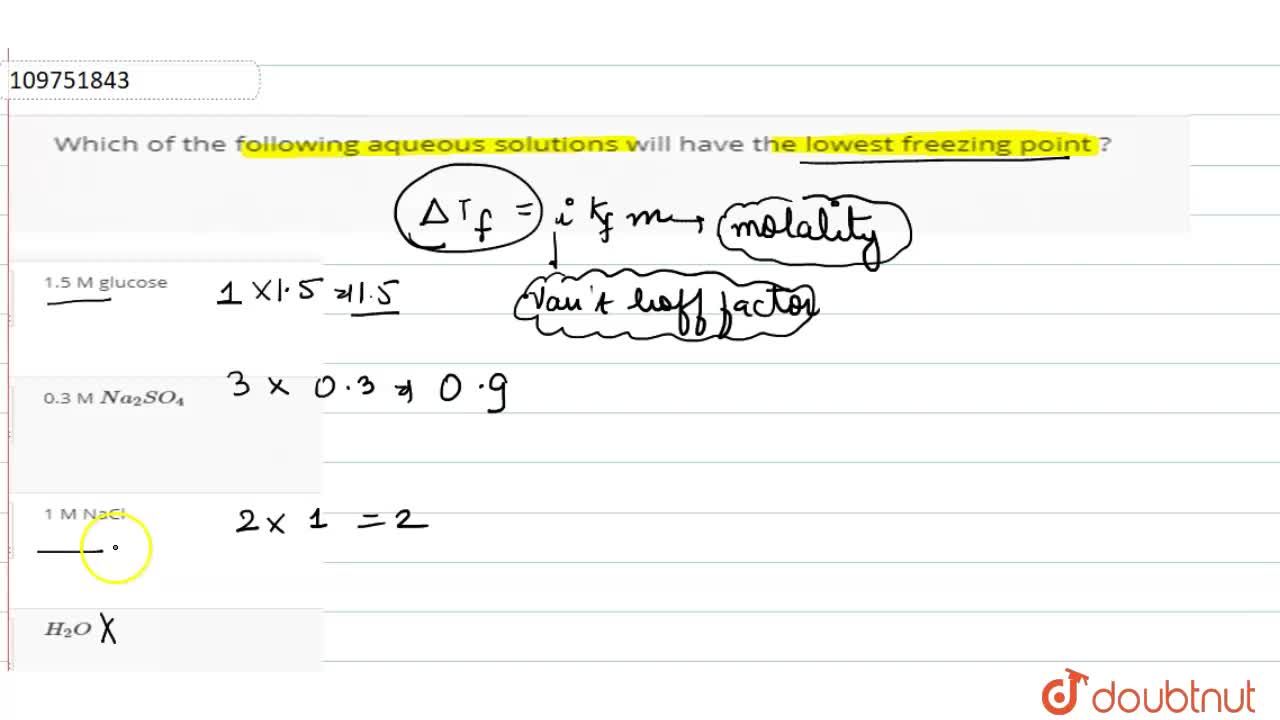 109751843
Which of the following aqueous solutions will have the lowest freezing point ?
ΔTf = i Kf m → molality
Van't hoff factor
1.5 M glucose 1 × 1.5 ⇒ 1.5
0.3 M Na₂SO₄ 3 × 0.3 ⇒ 0.9
1 M NaCl 2 × 1 = 2
H₂O X
doubtnut